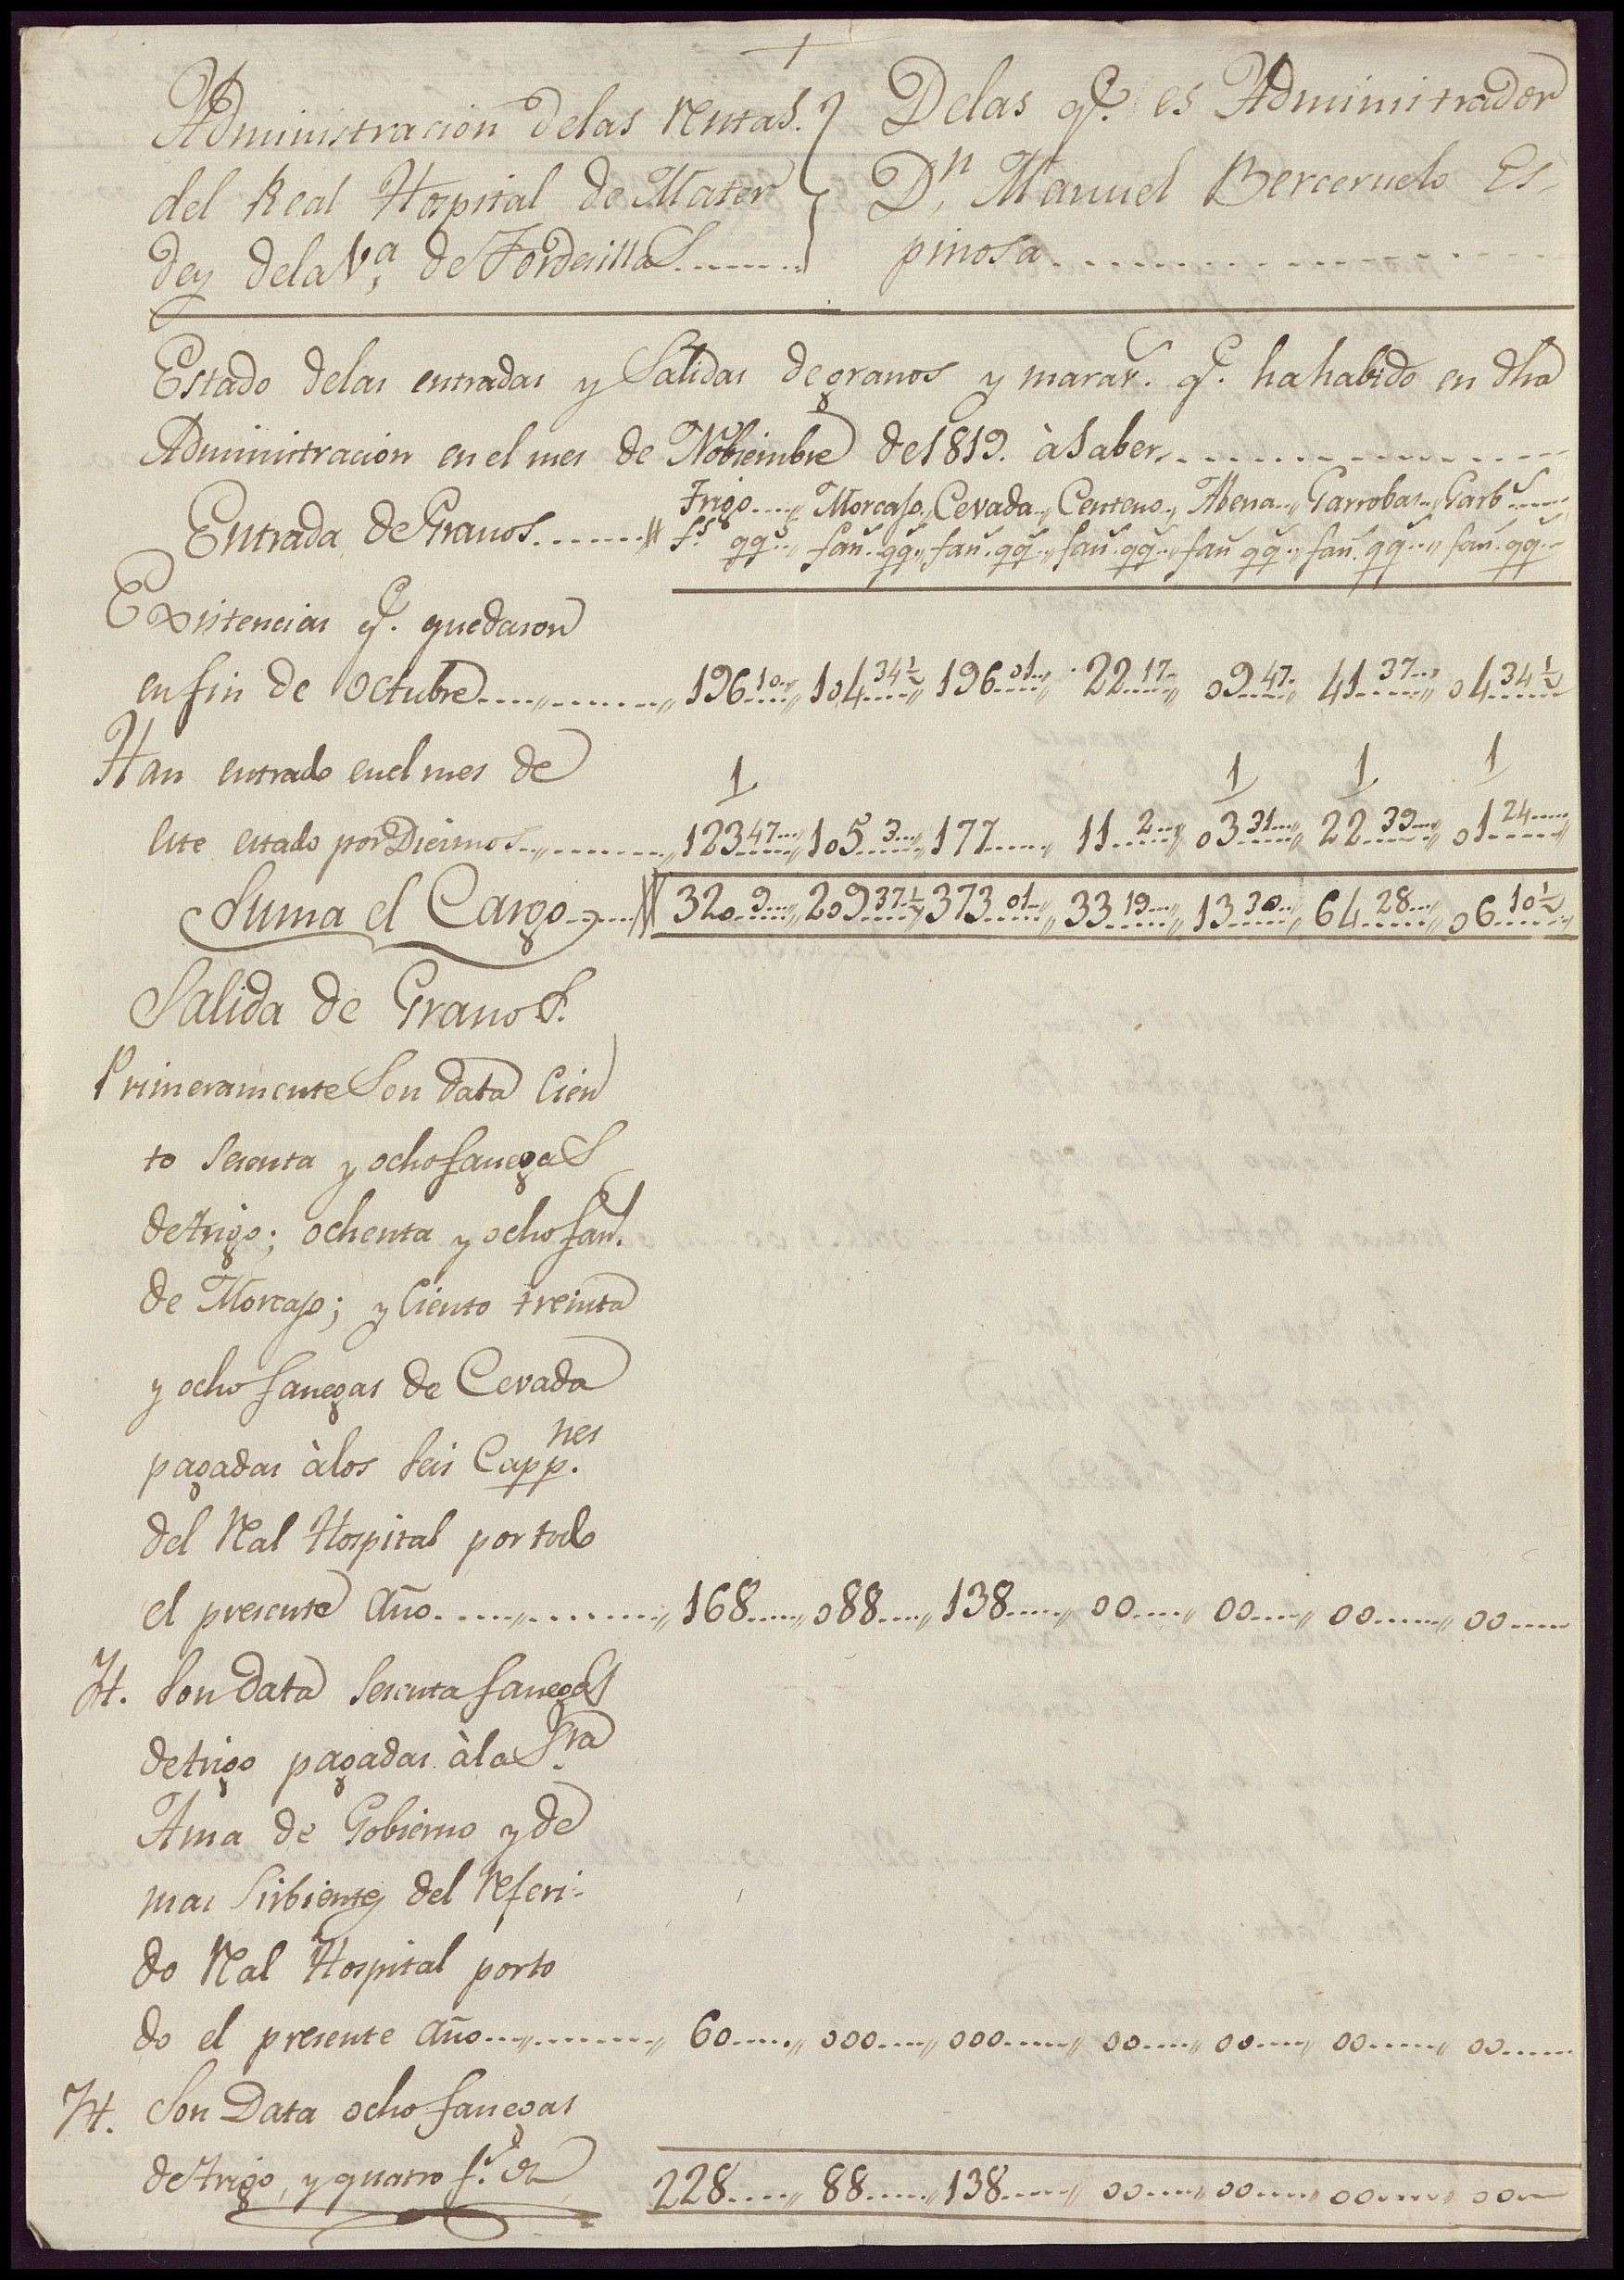 Administracion delas Rentas.
del Real Hospital de Mater
Dey dela Va. de Tordesillas........
Delas qe. es Administrador
Dn. Manuel Berceruelo Es-
pinosa..............
Estado delas entradas y Salidas de granos y maravs. qe. ha habido en dha
Administracion en el mes de Nobiembre de 1819. à Saber..............
Entrada de Granos........ Trigo.... Morcajo, Cevada, Centeno, Abena, Garrobas, Garbs.....
fs. qqs. fans. qqs. fans. qqs. fans. qqs. fans qqs. fans. qqs. fans. qqs.
Existencias qe. quedaron
en fin de Octubre........ 196 10 104 34½ 196 01 22 17 09 47 41 37 04 34½
Han entrado en el mes de 1 1 1 1
este estado por Diezmos........ 123 47 105 3 177 11 2 03 31 22 39 01 24
Suma el Cargo.... 320 9 209 37½ 373 01 33 19 13 30 64 28 06 10½
Salida de Granos.
Primeramente Son data Cien
to sesenta y ocho fanegas
de trigo; ochenta y ocho fans.
de Morcajo; y Ciento treinta
y ocho fanegas de Cevada
pagadas à los seis Cappnes.
del Rl Hospital por todo
el presente año........ 168 088 138 00 00 00 00
It. Son Data sesenta fanegas
de trigo pagadas à la Sra.
Ama de Gobierno y de
mas Sirbientes del Referi-
do Rl Hospital por to
do el presente año........ 60 000 000 00 00 00 00
It. Son Data ocho fanegas
de trigo, y quatro fs. de
228 88 138 00 00 00 00